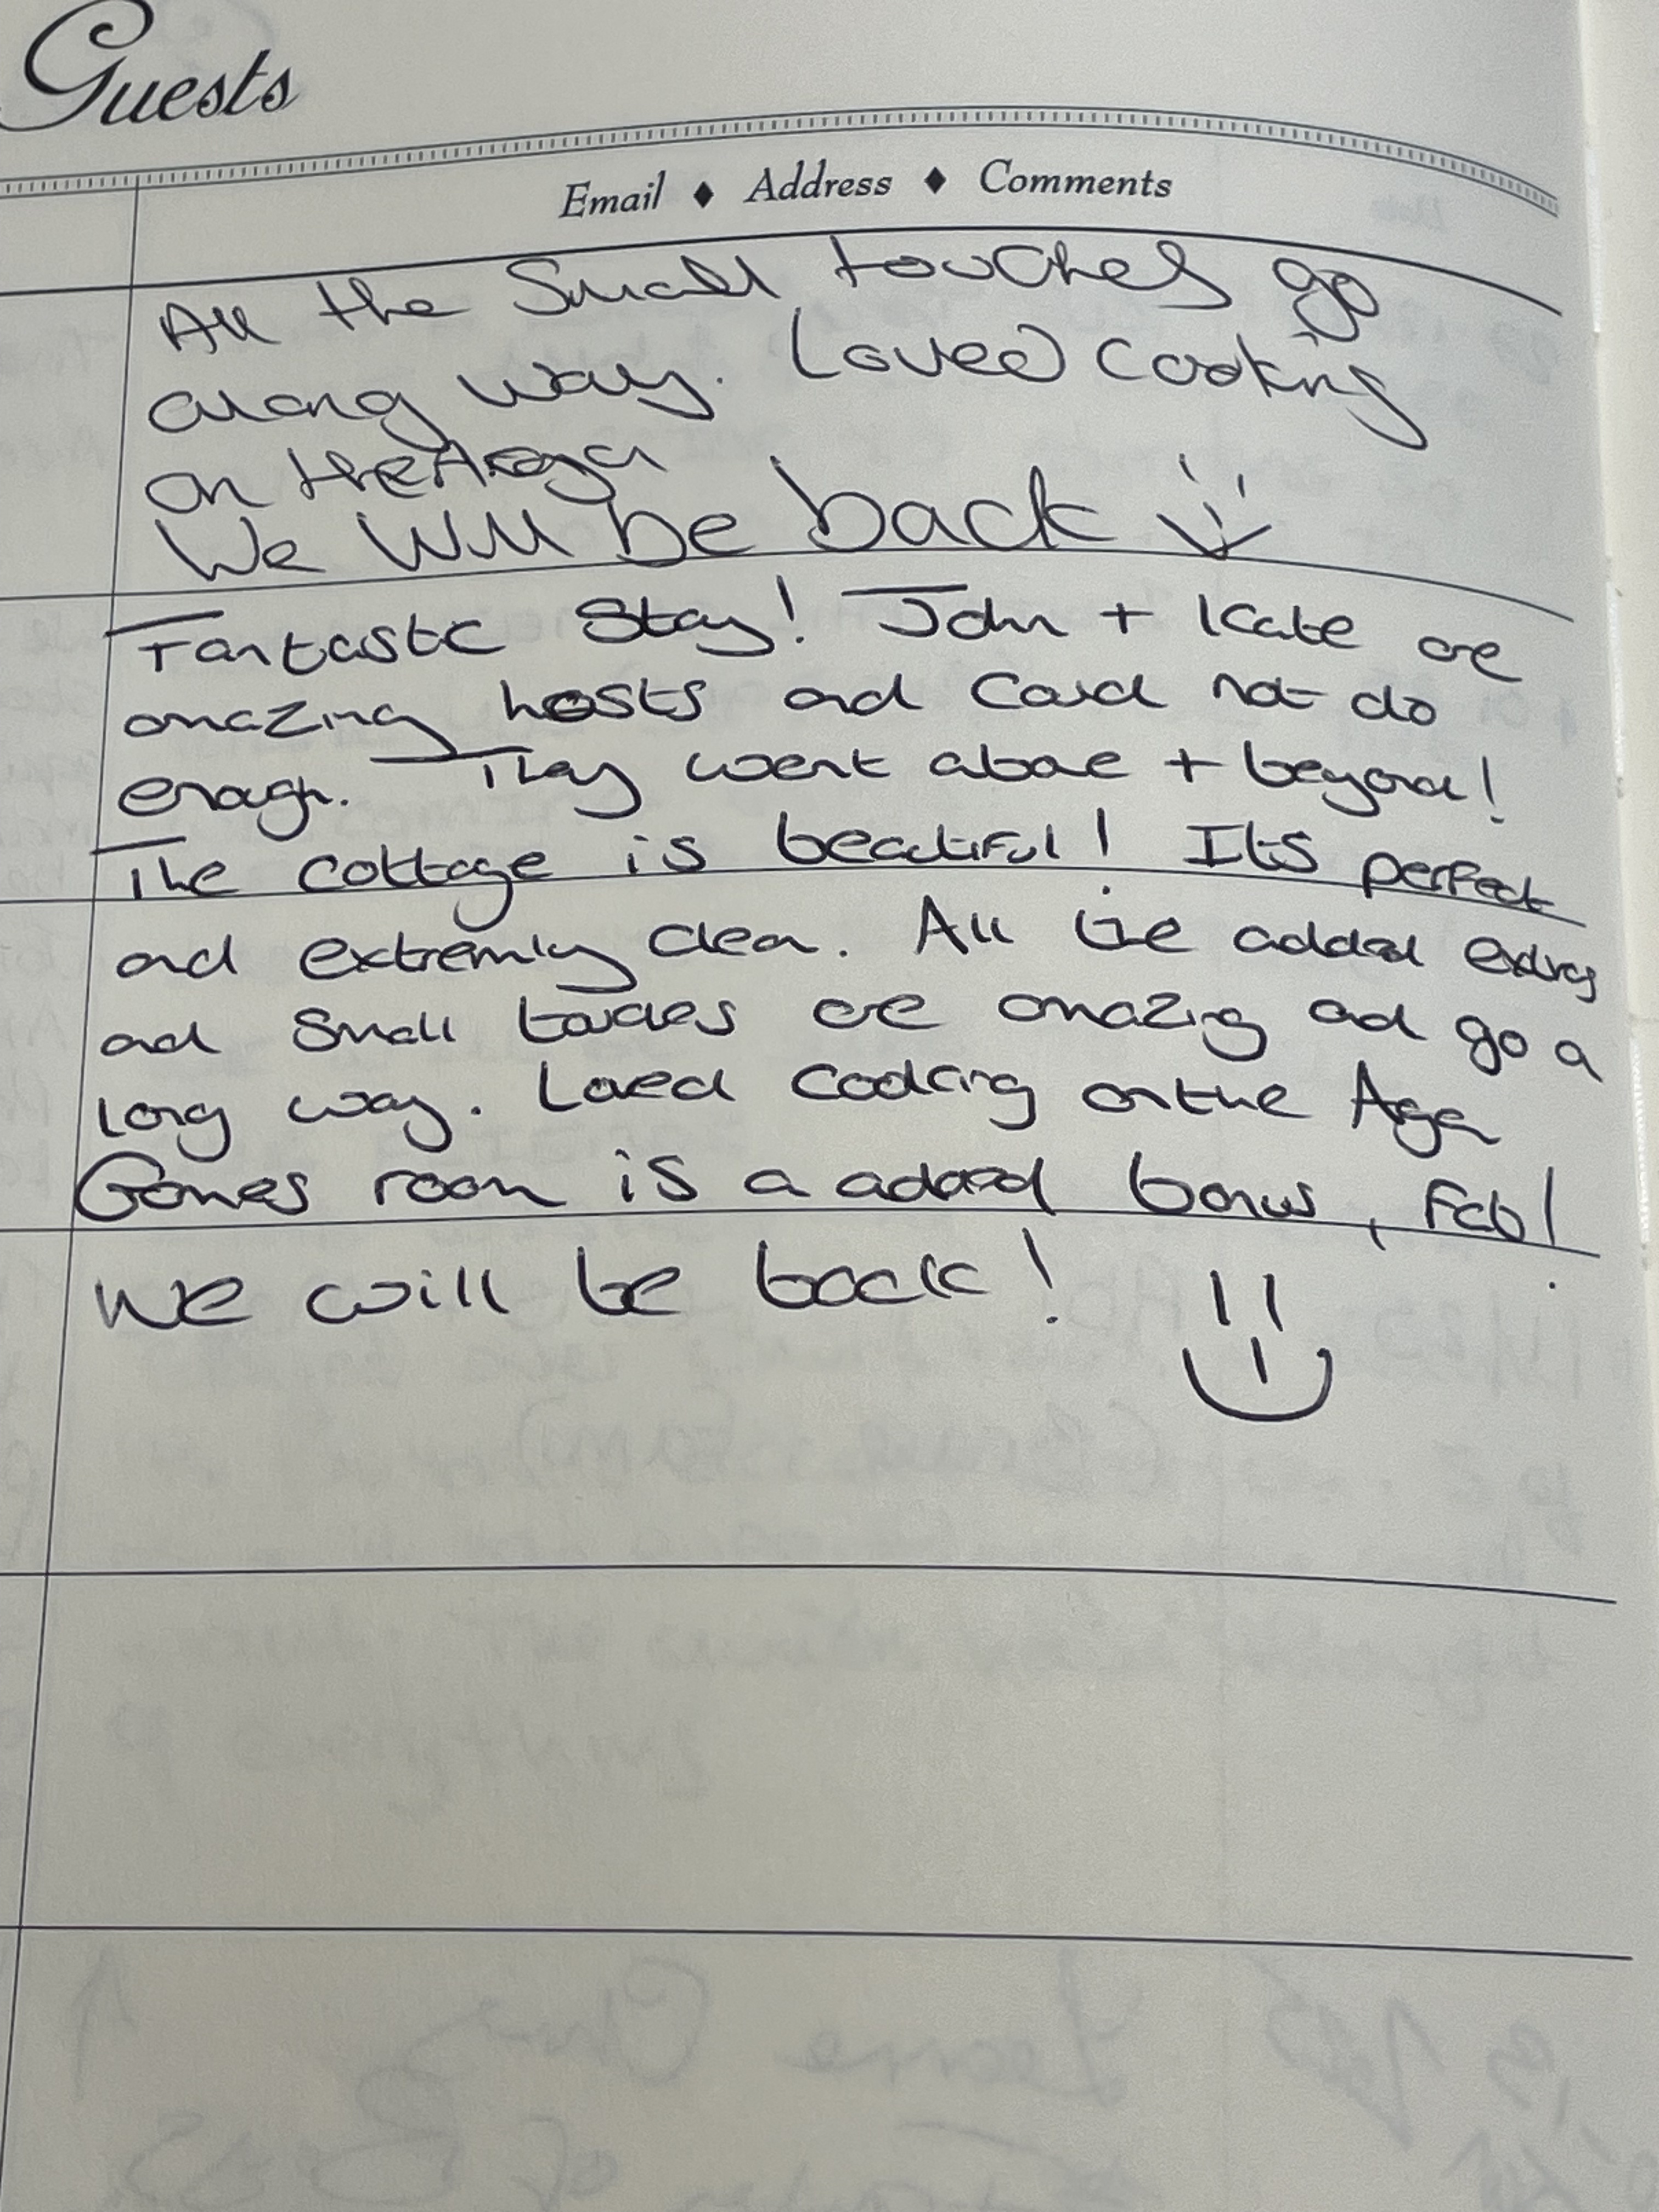 Guests
Email ♦ Address ♦ Comments
All the Small touches go
along way. Loved cooking
on the Aga
We Will be back
Fantastic Stay! John + Kate are
amazing hosts and Could not do
enough. They went above + beyond!
The cottage is beautiful! Its perfect
and extremly clean. All the added extras
and Small touches are amazing and go a
long way. Loved Cooking on the Aga
Games room is a added bonus, Fab!
We will be back!